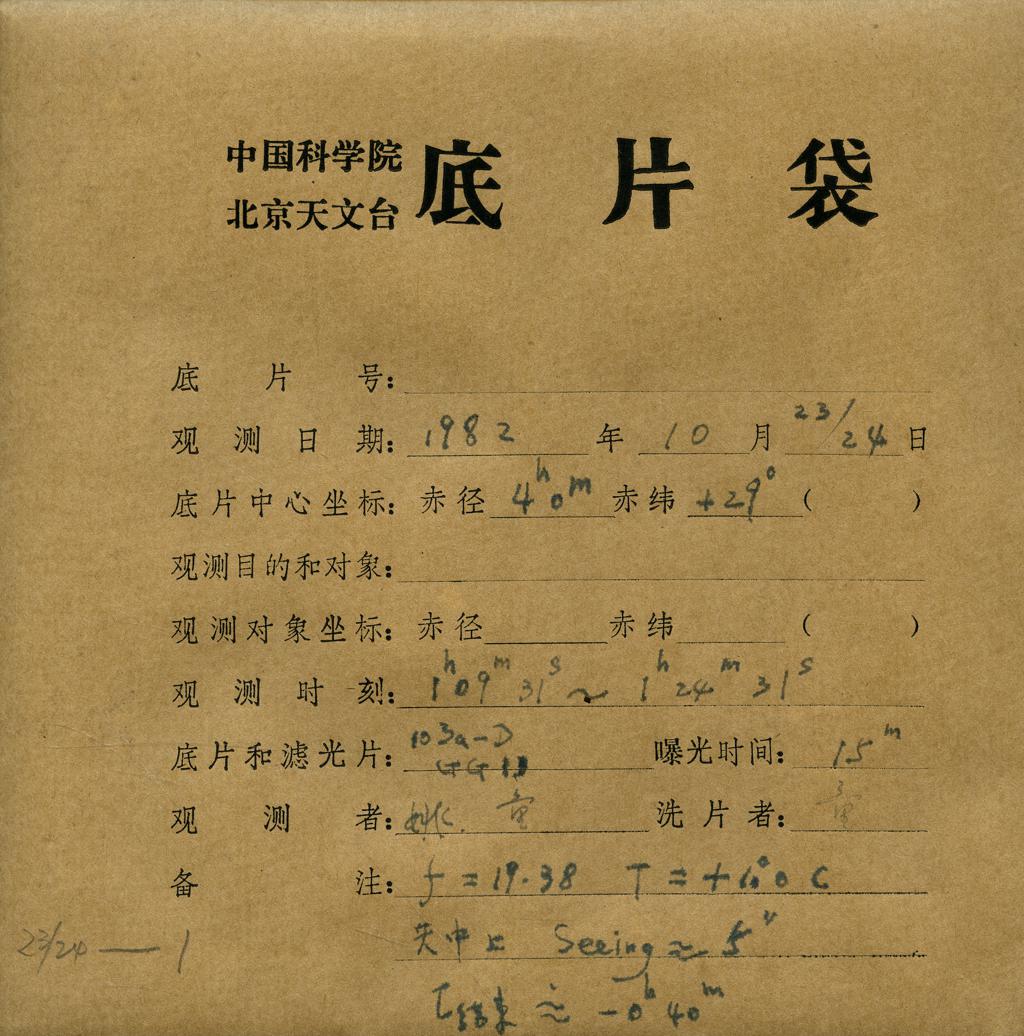 中国科学院
北京天文台
底片袋
底片号:
观测日期: 1982 年 10 月 23/24 日
底片中心坐标: 赤径 4h0m 赤纬 +29° ( )
观测目的和对象:
观测对象坐标: 赤径 赤纬 ( )
观测时刻: 1h09m31s ~ 1h24m31s
底片和滤光片: 103a-D
GG11 曝光时间: 15m
观测者: 姚. 童 洗片者: 童
备注: f = 19.38 T = C
23/24 — 1
Seeing ≈ 5"
结束 ≈ -0h40m